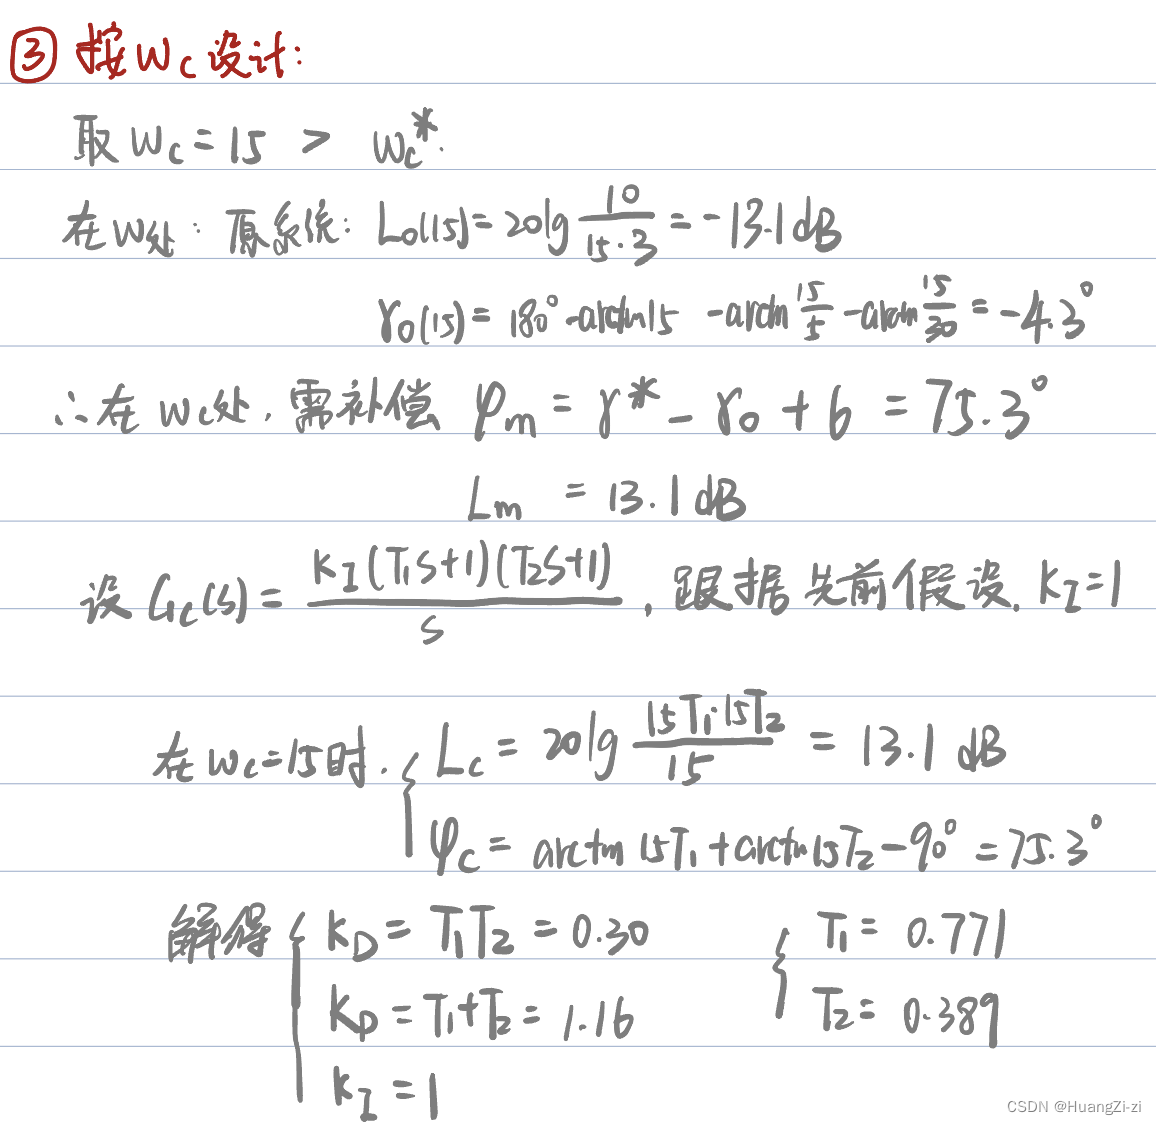 ③ 按Wc设计:
取 Wc = 15 > Wc*.
在W处: 原系统: L0(15) = 20lg 10/(15·3) = -13.1dB
γ0(15) = 180° - arctan15 - arctan 15/5 - arctan 15/30 = -4.3°
∴在 Wc处, 需补偿 φm = γ* - γ0 + 6 = 75.3°
Lm = 13.1dB
设 Gc(s) = KI(T1s+1)(T2s+1)/s, 跟据先前假设, KI=1
在 Wc=15时. { Lc = 20lg 15T1·15T2/15 = 13.1 dB
φc = arctan 15T1 + arctan 15T2 - 90° = 75.3°
解得 { KD = T1T2 = 0.30 { T1 = 0.771
KP = T1+T2 = 1.16 T2 = 0.389
KI = 1
CSDN @HuangZi-zi